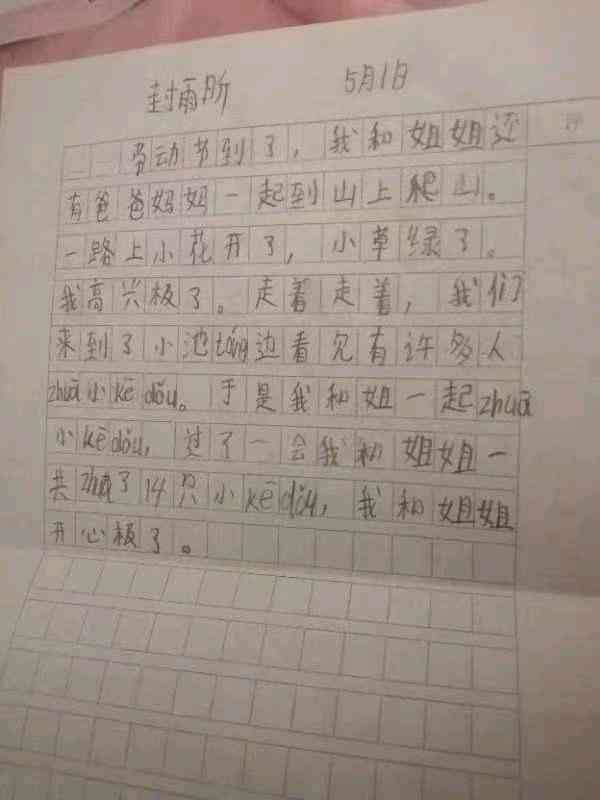 封雨昕 5月1日
劳动节到了，我和姐姐还
有爸爸妈妈一起到山上爬山。
一路上小花开了，小草绿了。
我高兴极了。走着走着，我们
来到了小池táng边看见有许多人
zhuā小kē dǒu。于是我和姐一起zhuā
小kē dǒu，过了一会我和姐姐一
共zhuā了14只小kē dǒu，我和姐姐
开心极了。